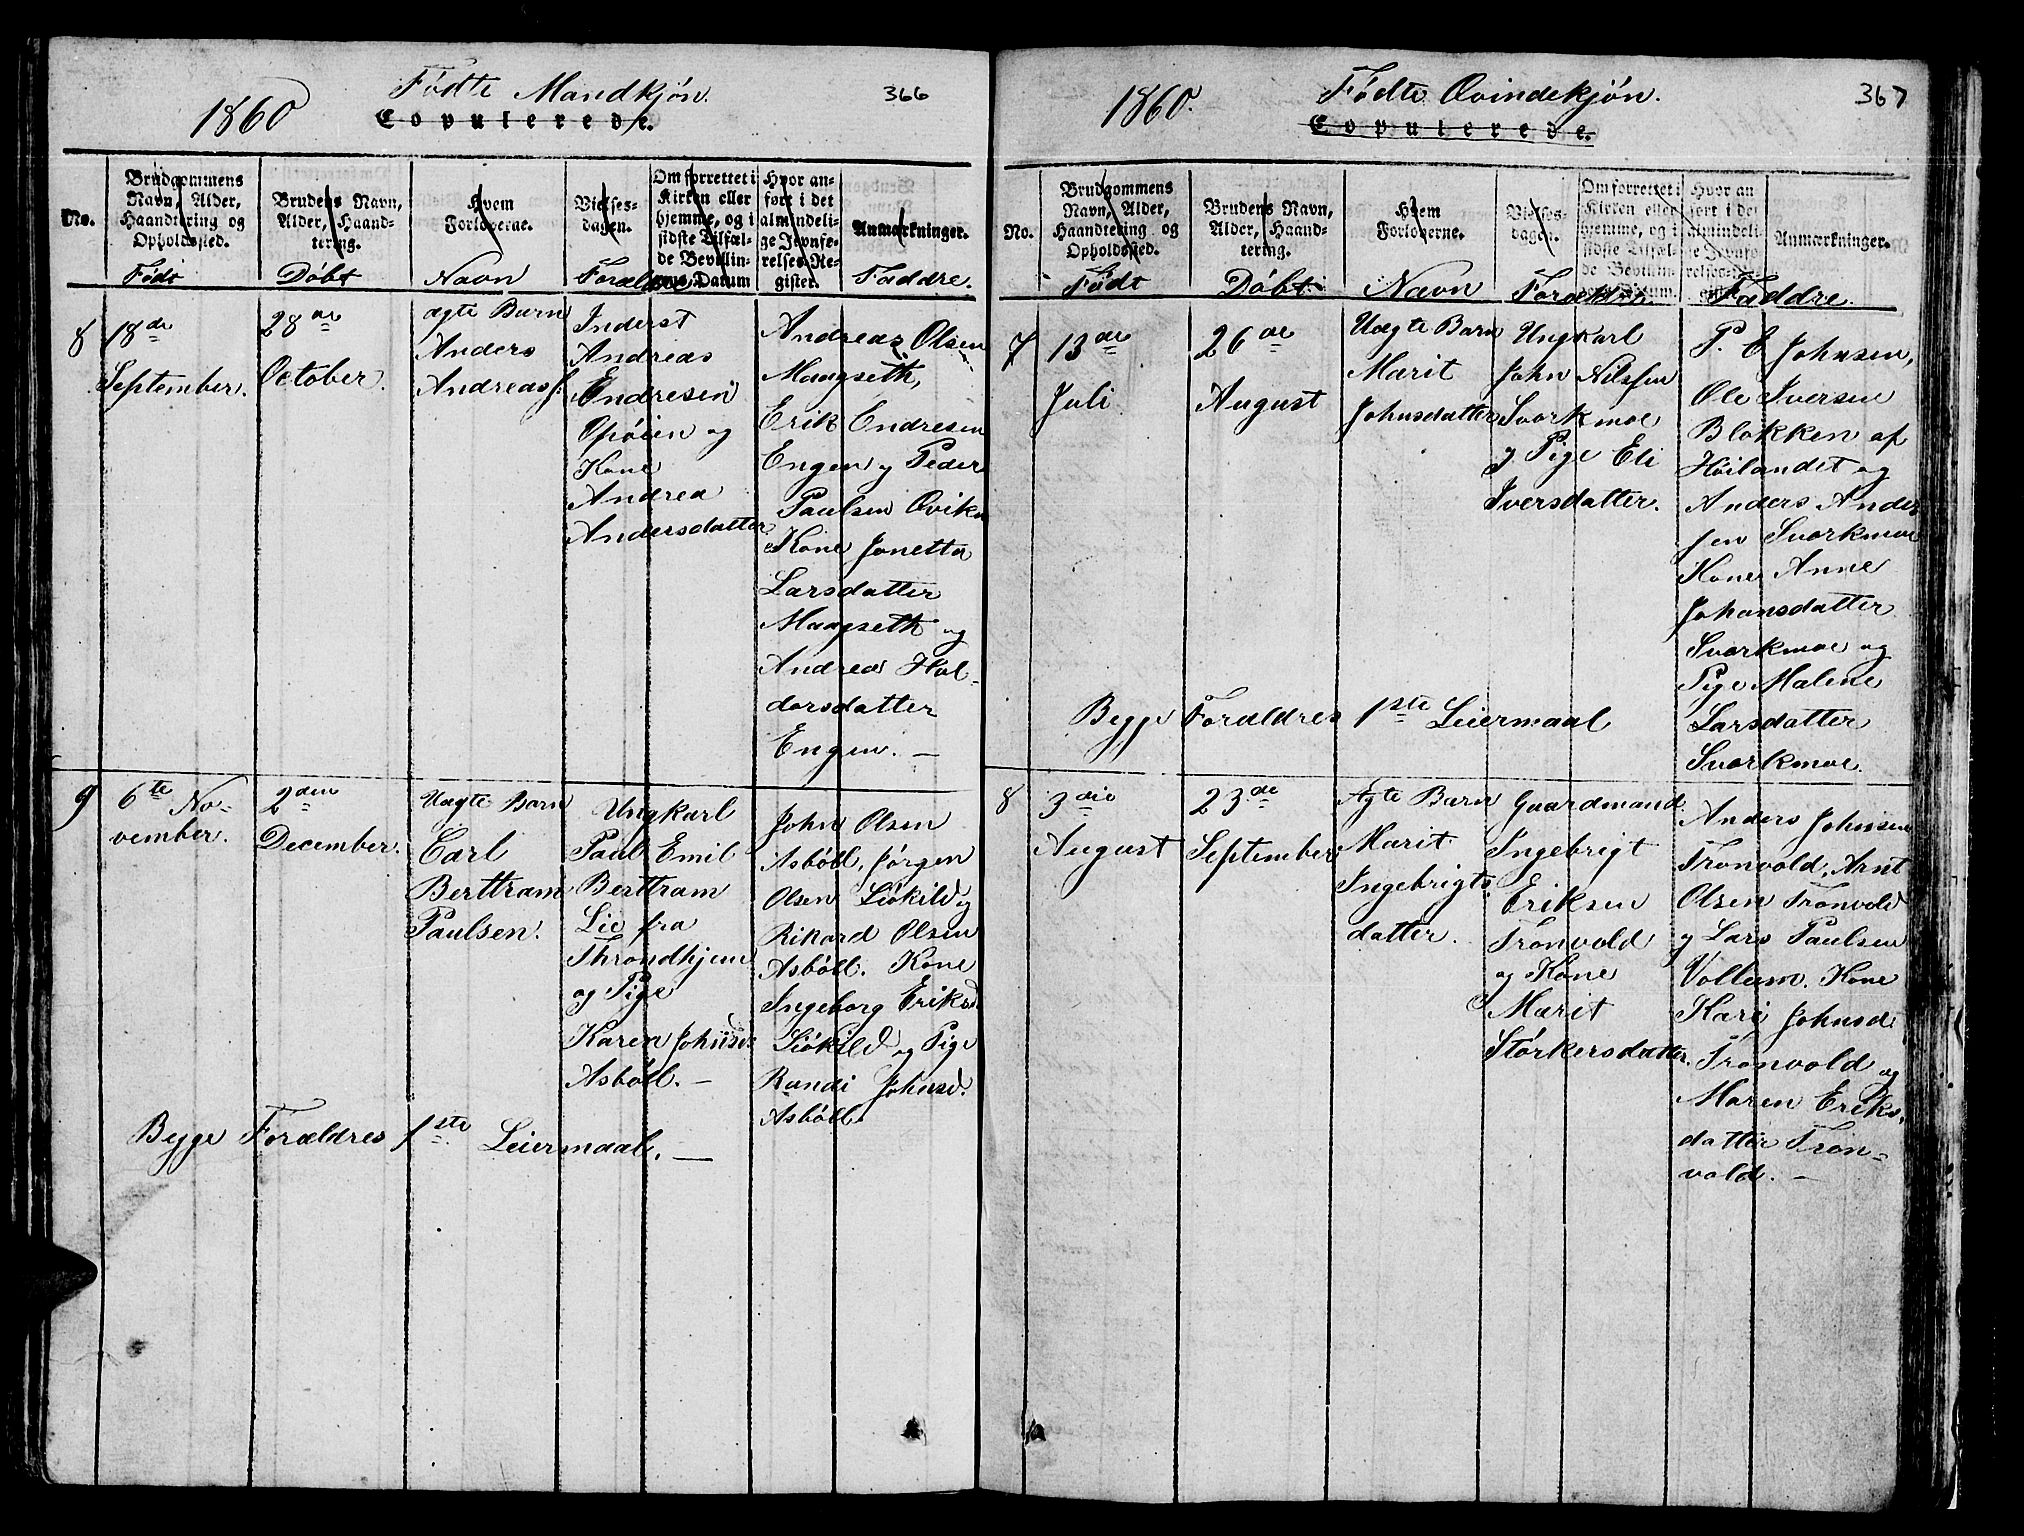 1860
Fødte Mandkjøn.
366
Copulerede.
No.
Brudgommens Navn, Alder, Haandtering og Opholdssted.
Brudens Navn, Alder, Haandtering.
Hvem Forloverne.
Vielsesdagen.
Om forrettet i Kirken eller hjemme, og i sidste Tilfælde Bevillingens Datum
Hvor anført i det almindelige Jevnførelses-Register.
Anmærkninger.
Født
Døbt
Navn
Forældre
Faddre.
8
18de
September.
28de
October.
ægte Barn
Anders
Andreass:
Inderst
Andreas
Endresen
Opøien og
Kone
Andrea
Andersdatter
Andreas Olsen
Maagseth,
Erik Endresen
Engen og Peder
Paulsen Qviken
Kone Jonetta
Larsdatter
Maagseth og
Andrea Hal-
dorsdatter
Engen. —
9
6te No-
vember.
2den
December.
Uægte Barn
Carl
Berttram
Paulsen.
Ungkarl
Paul Emil
Berttram
Lie fra
Throndhjem
og Pige
Karen Johnsd.
Asbøll. —
John Olsen
Asbøll, Jørgen
Olsen Liøkild og
Rikard Olsen
Asbøll. Kone
Ingeborg Eriksd
Liøkild og Pige
Randi Johnsd.
Asbøll.
Begge Forældres 1ste Leiermaal. —
1860.
Fødte Qvindekjøn.
367
Copulerede.
No.
Brudgommens Navn, Alder, Haandtering og Opholdssted.
Brudens Navn, Alder, Haandtering.
Hvem Forloverne.
Vielsesdagen.
Om forrettet i Kirken eller hjemme, og i sidste Tilfælde Bevillin
Hvor anført i det almindelige
Anmærkninger.
Født
Døbt
Navn
Forældre
Faddre.
7
13de
Juli
26de
August
Uægte Barn
Marit
Johnsdatter
Ungkarl
John Nilssen
Svorkmoe
og Pige Eli
Iversdatter.
P. E Johnsen,
Ole Iversen
Blokken af
Høilandet og
Anders Ander
sen Svorkmoe
Kone Anne
Johansdatter
Svorkmoe og
Pige Malene
Larsdatter
Svorkmoe.
Begge Forældres 1ste Leiermaal
8
3die
August
23de
September
Ægte Barn
Marit
Ingebrigts
datter.
Gaardmand
Ingebrigt
Eriksen
Tronvold
og Kone
Marit
Størkersdatter.
Anders Johnsen
Tronvold, Arnt
Olsen Tronvold
og Lars Paulsen
Vollum. Kone
Kari Johnsd
Tronvold og
Maren Eriks-
datter Tron-
vold. —